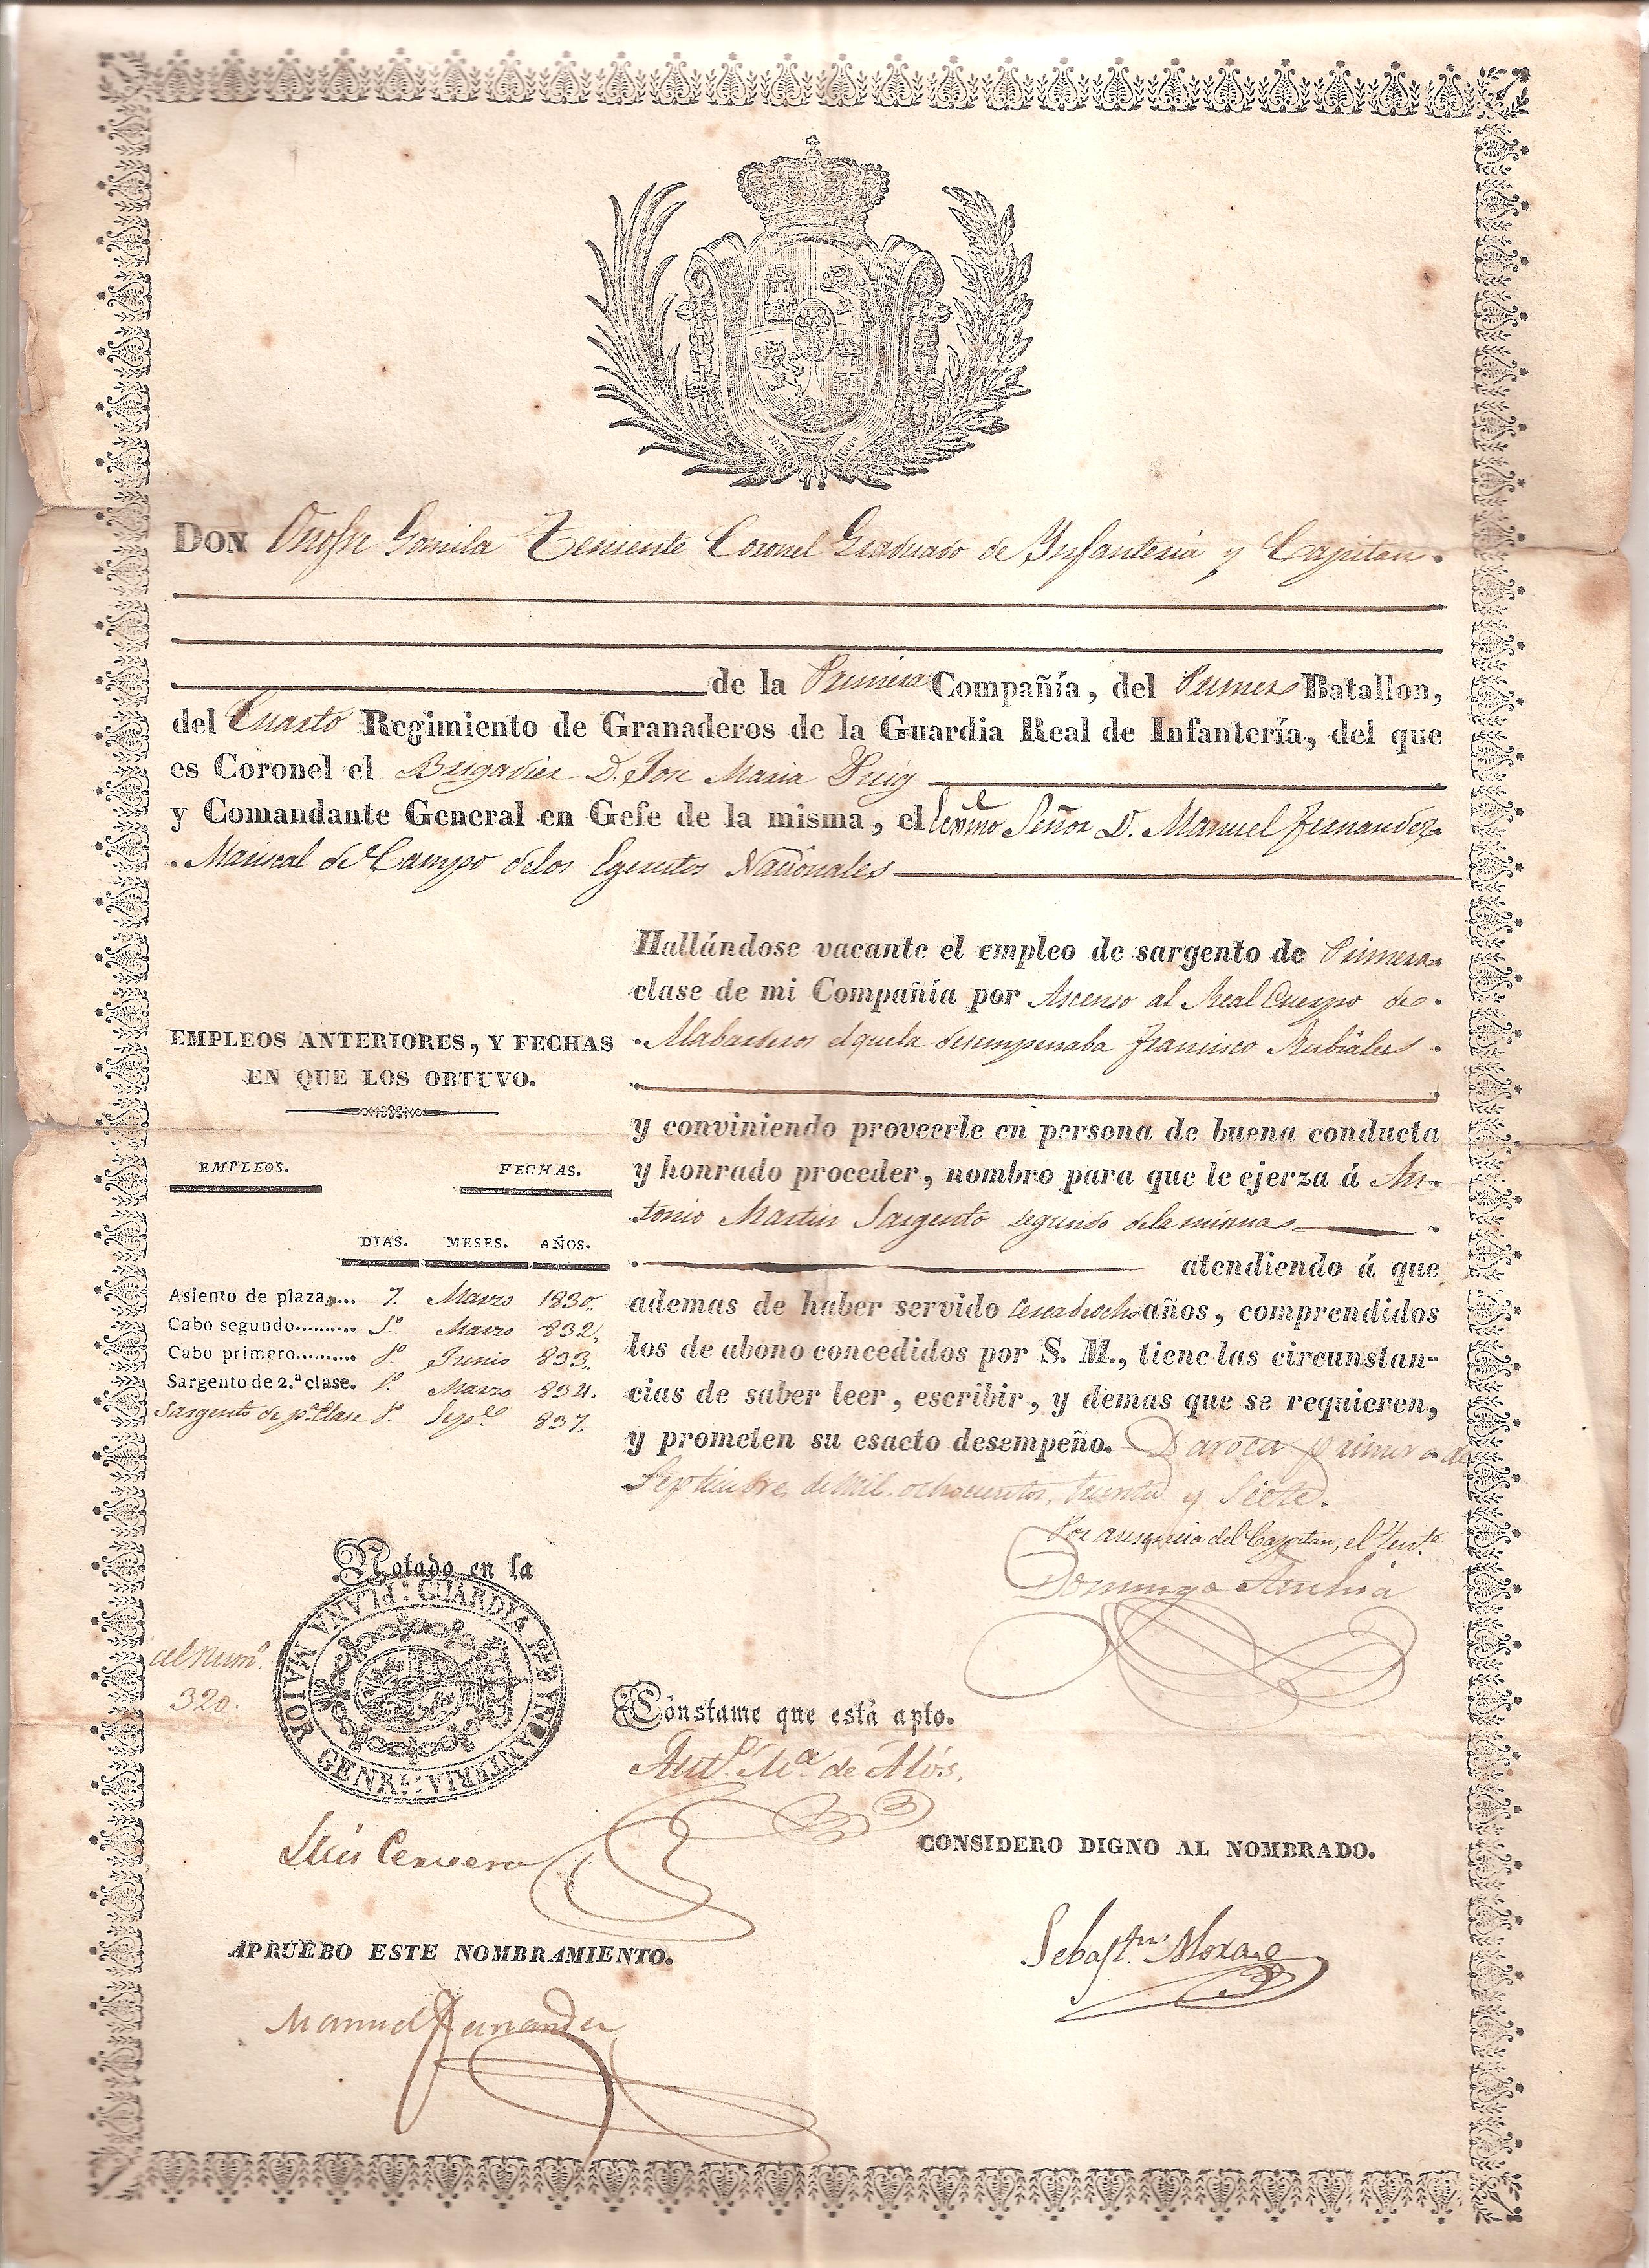 DON Onofre Gomila Teniente Coronel Graduado de Infanteria y Capitan.
de la Primera Compañía, del Primer Batallon,
del Cuarto Regimiento de Granaderos de la Guardia Real de Infantería, del que
es Coronel el Brigadier D. Jose Maria Puig
y Comandante General en Gefe de la misma, el Señor D. Manuel Fernandez
Mariscal de Campo de los Egercitos Nacionales
Hallándose vacante el empleo de sargento de Primera
clase de mi Compañía por Ascenso al Real Cuerpo de
Alabarderos el que la desempeñaba Francisco Rubiales
EMPLEOS ANTERIORES, Y FECHAS
EN QUE LOS OBTUVO.
y conviniendo proveerle en persona de buena conducta
y honrado proceder, nombro para que le ejerza á An-
tonio Martin Sargento segundo de la misma
atendiendo á que
ademas de haber servido cerca de ocho años, comprendidos
los de abono concedidos por S. M., tiene las circunstan-
cias de saber leer, escribir, y demas que se requieren,
y prometen su esacto desempeño. Daroca primero de
Septiembre de Mil ochocientos, treinta y Siete.
EMPLEOS. FECHAS.
DIAS. MESES. AÑOS.
Asiento de plaza.... 7. Marzo 1830.
Cabo segundo......... 1º Marzo 832.
Cabo primero.......... 1º Junio 833.
Sargento de 2.ª clase. 1º Marzo 834.
Sargento de pª Clase 1º Sepe 837.
Por ausencia del Capitan, el Tente
Domingo
Notado en la
PLANA MAIOR GENRL: GUARDIA Rl INFANTERIA
al numº
320.
Cónstame que está apto.
Antº Mª de Alós.
Cervero
CONSIDERO DIGNO AL NOMBRADO.
APRUEBO ESTE NOMBRAMIENTO.
Manuel Fernandez